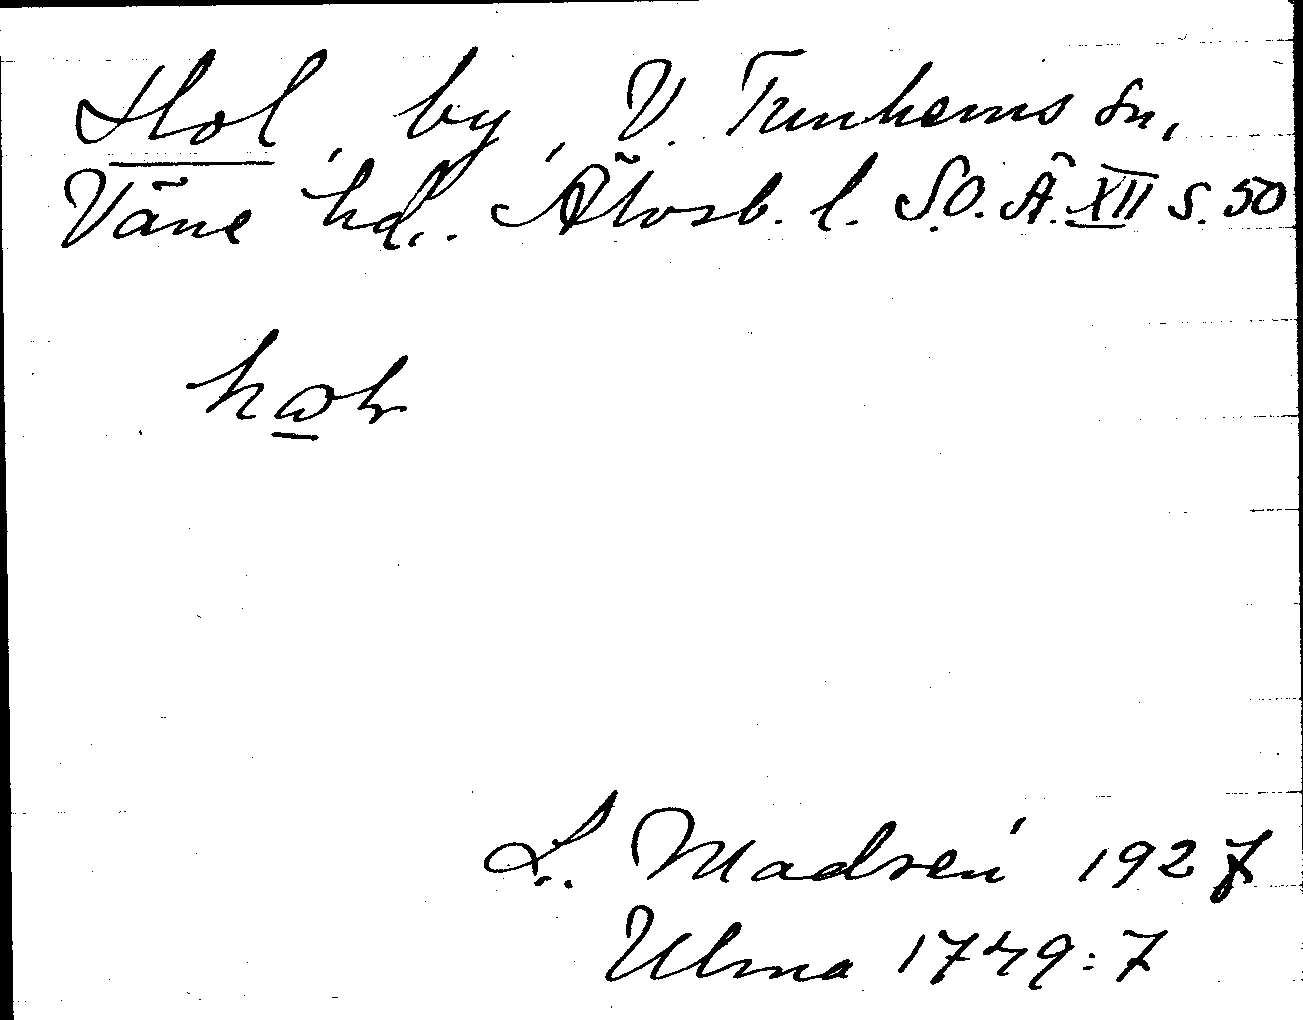 Hol, by, V. Tunhems sn,
Väne hd. Älvsb. l. SO.Ä. XII s. 50
L. Madsén 1927
Ulma 1749:7